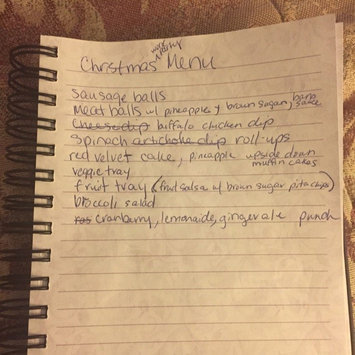 Christmas Menu
Sausage balls
Meat balls w/ pineapple & brown sugar, barb sauce
Cheese dip buffalo chicken dip
Spinach artichoke dip roll-ups
red velvet cake, pineapple upside down muffin cakes
veggie tray
fruit tray (fruit salsa w/ brown sugar pita chips)
broccoli salad
cranberry, lemonaide, gingerale punch